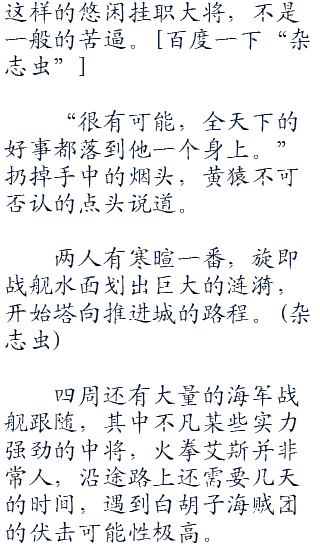 这样的悠闲挂职大将，不是
一般的苦逼。[百度一下“杂
志虫”]
“很有可能，全天下的
好事都落到他一个身上。”
扔掉手中的烟头，黄猿不可
否认的点头说道。
两人有寒暄一番，旋即
战舰水面划出巨大的涟漪，
开始塔向推进城的路程。(杂
志虫)
四周还有大量的海军战
舰跟随，其中不凡某些实力
强劲的中将，火拳艾斯并非
常人，沿途路上还需要几天
的时间，遇到白胡子海贼团
的伏击可能性极高。